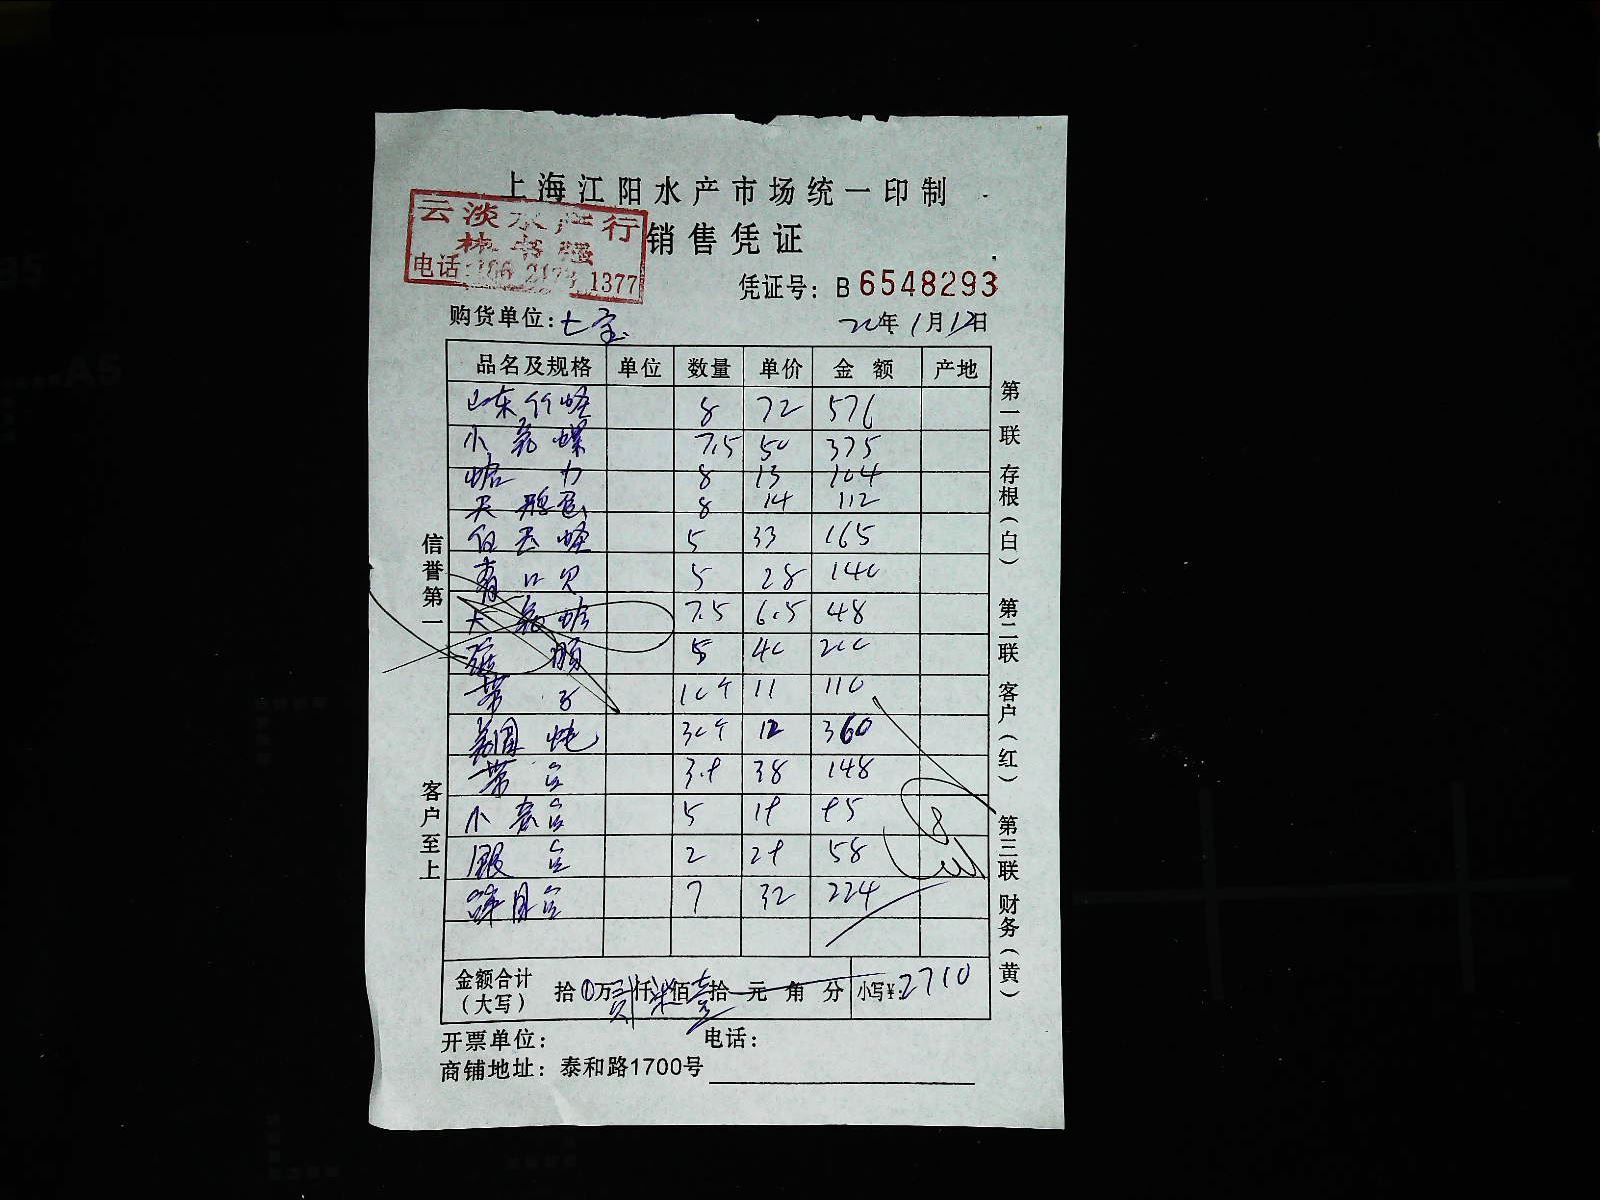 上海江阳水产市场统一印制
云淡水产行
销售凭证
电话: 1377
凭证号: B 6548293
购货单位: 七宝
20年1月12日
品名及规格 单位 数量 单价 金额 产地
山东竹蛏 8 72 576
小 螺 7.5 50 375
8 13 104
8 14 112
白玉蛏 5 33 165
青口贝 5 28 140
7.5 6.5 48
5 40 200
带子 10个 11 110
30个 12 360
3.9 38 148
小 5 19 95
银 2 29 58
7 32 224
金额合计
(大写) 拾 0 万 贰 仟 柒 佰 壹 拾 元 角 分 小写¥: 2710
开票单位: 电话:
商铺地址: 泰和路1700号
信誉第一 客户至上
第一联 存根(白) 第二联 客户(红) 第三联 财务(黄)